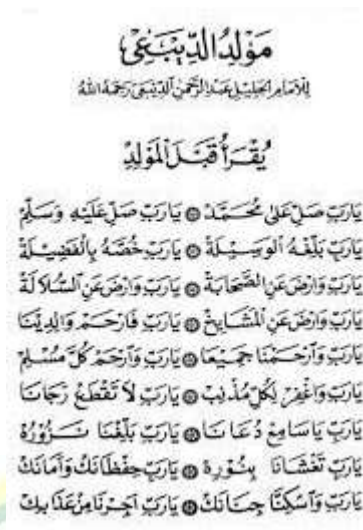 مَوْلِدُ الدِّيْبَعِيْ
لِلْاِمَامِ الْجَلِيْلِ عَبْدِ الرَّحْمٰنِ الدِّيْبَعِيْ رَحِمَهُ اللهُ
يُقْرَأُ قَبْلَ الْمَوْلِدِ
يَارَبِّ صَلِّ عَلٰى مُحَمَّدْ ۞ يَارَبِّ صَلِّ عَلَيْهِ وَسَلِّمْ
يَارَبِّ بَلِّغْهُ الْوَسِيْلَةْ ۞ يَارَبِّ خُصَّهُ بِالْفَضِيْلَةْ
يَارَبِّ وَارْضَ عَنِ الصَّحَابَةْ ۞ يَارَبِّ وَارْضَ عَنِ السُّلَالَةْ
يَارَبِّ وَارْضَ عَنِ الْمَشَايِخْ ۞ يَارَبِّ فَارْحَمْ وَالِدِيْنَا
يَارَبِّ وَارْحَمْنَا جَمِيْعًا ۞ يَارَبِّ وَارْحَمْ كُلَّ مُسْلِمْ
يَارَبِّ وَاغْفِرْ لِكُلِّ مُذْنِبْ ۞ يَارَبِّ لَا تَقْطَعْ رَجَانَا
يَارَبِّ يَاسَامِعْ دُعَانَا ۞ يَارَبِّ بَلِّغْنَا نَزُوْرُهْ
يَارَبِّ تَغْشَانَا بِنُوْرِهْ ۞ يَارَبِّ حِفْظَانَكْ وَاَمَانَكْ
يَارَبِّ وَاَسْكِنَّا جِنَانَكْ ۞ يَارَبِّ اَجِرْنَا مِنْ عَذَابِكْ